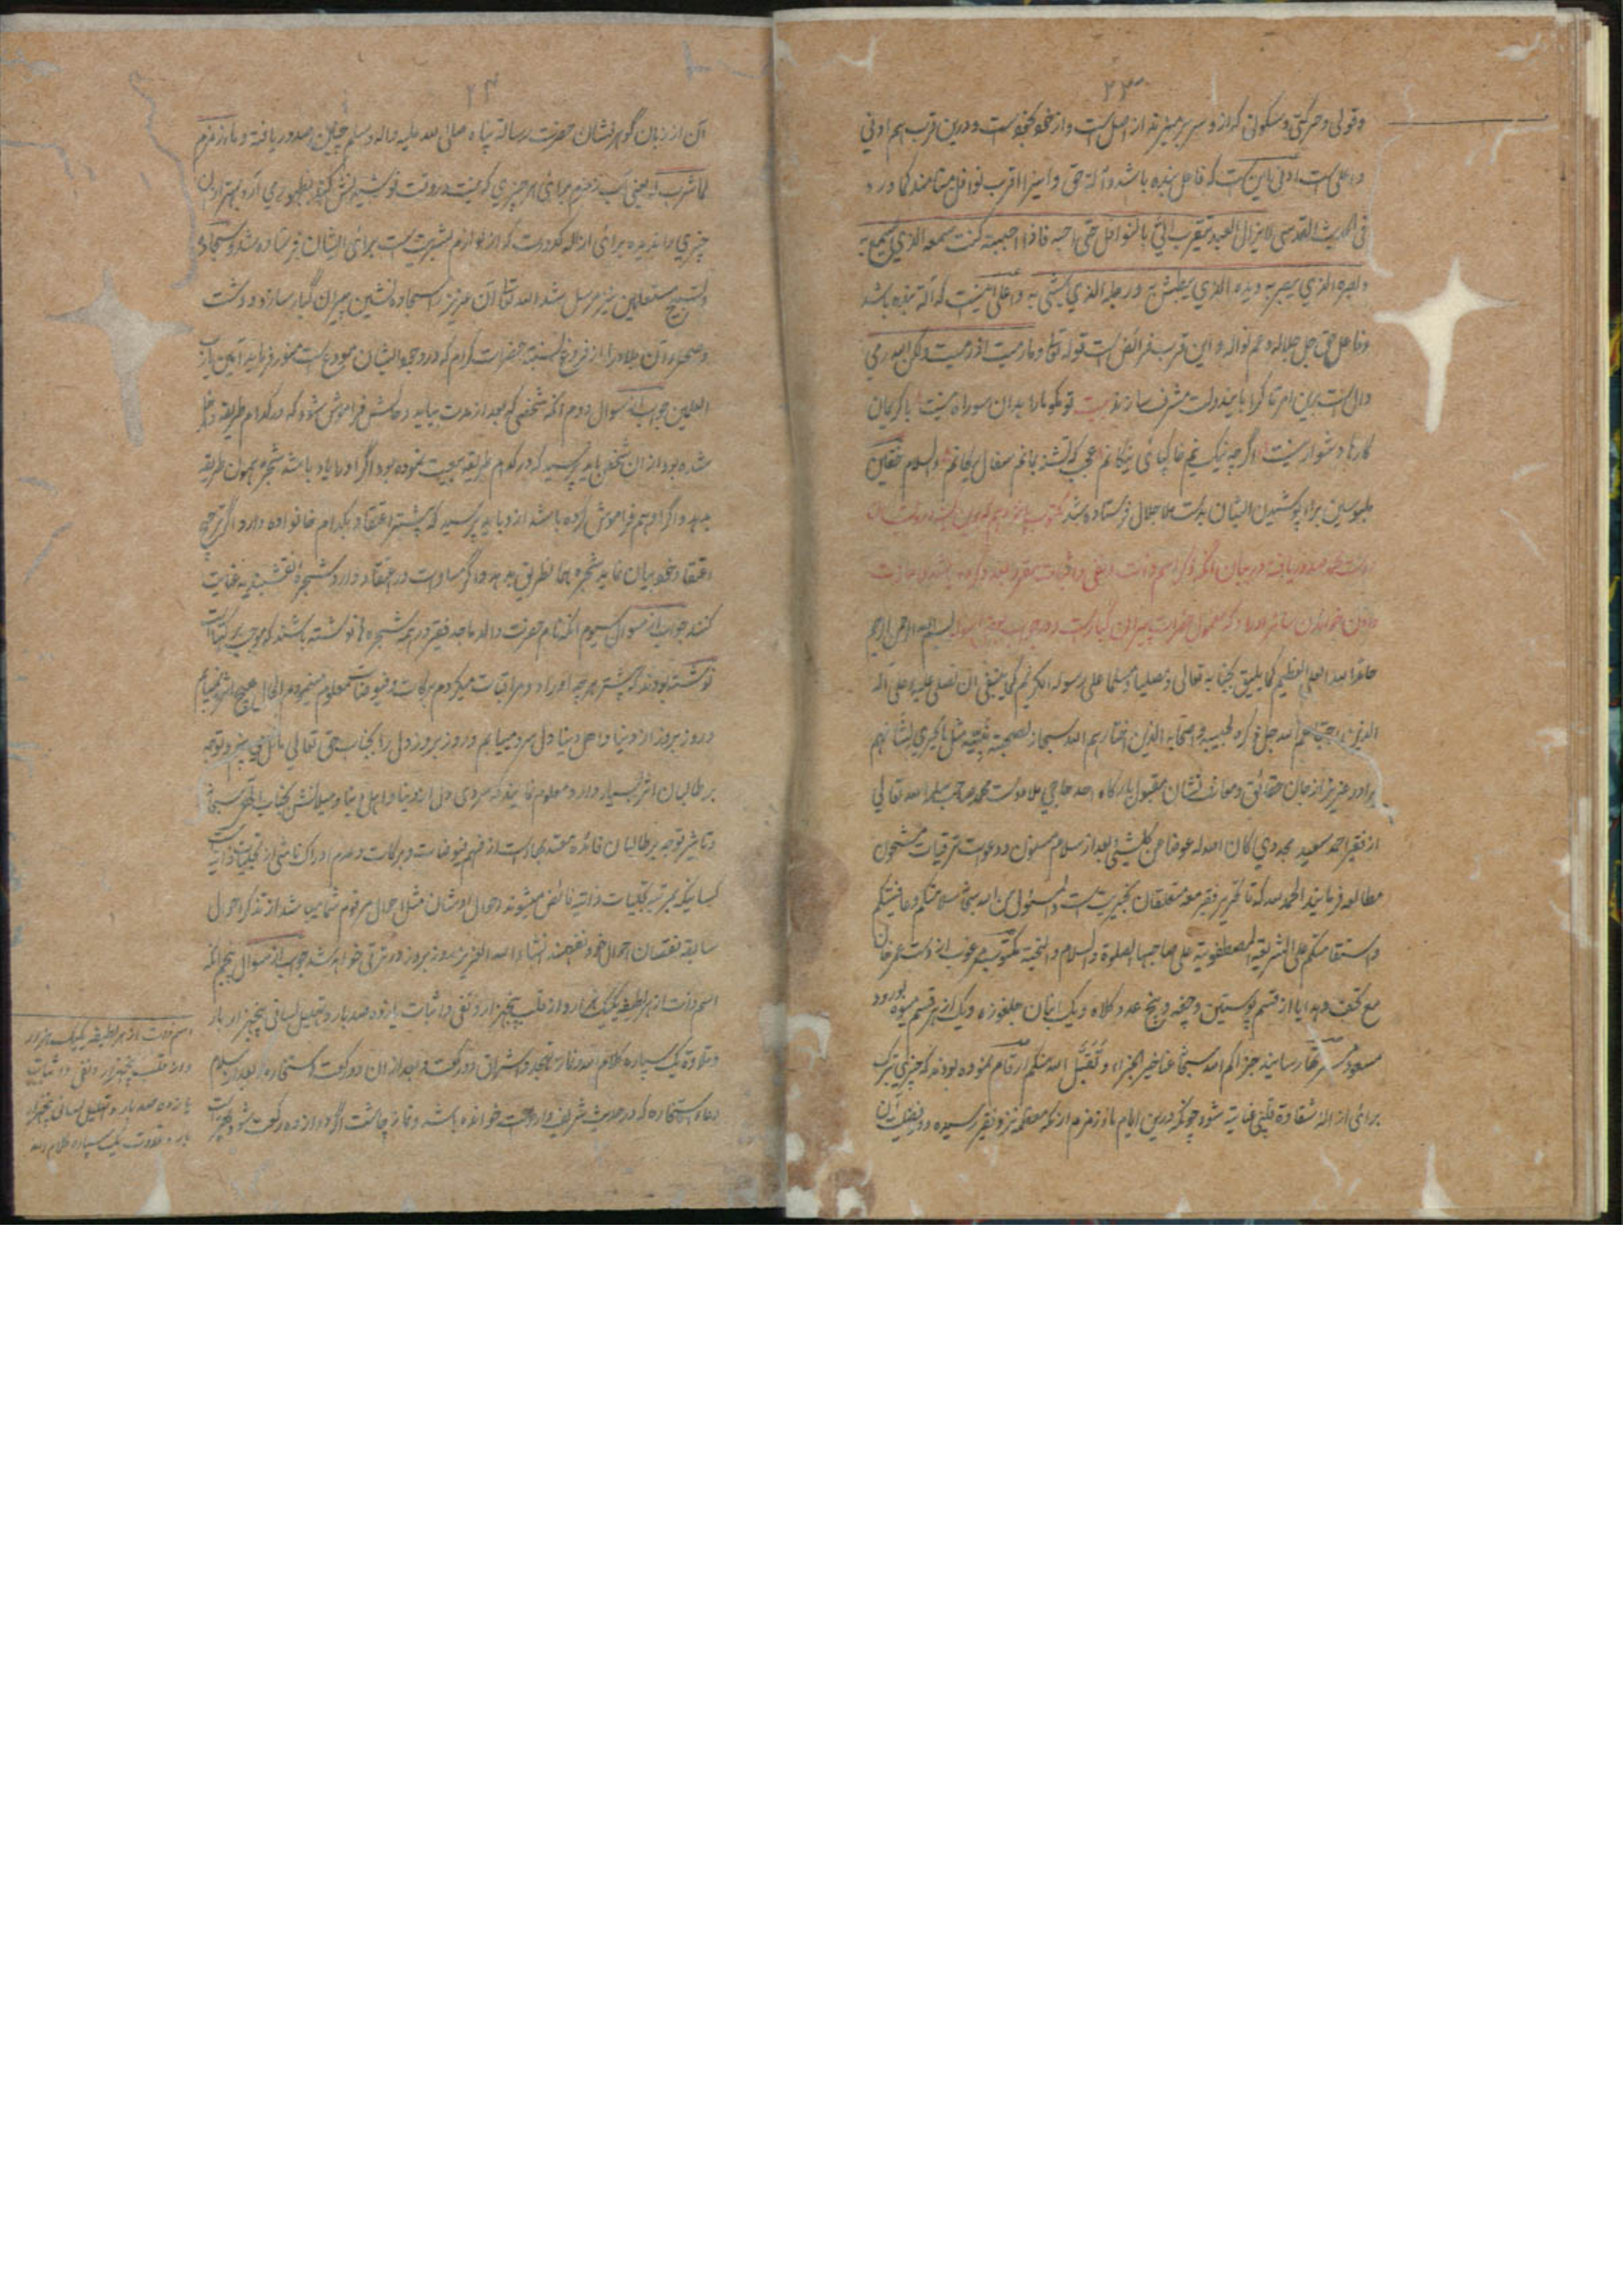 ۲۳
وقولی و حرکتی و سکونی که از و سر بر میزند از اصل است و از خود بخود است و درین قرب هم ادنی
و اعلی است ادنی این است که فاعل بنده باشد و آلة حق و این را قرب نوافل مینامند کما ورد
فی الحدیث القدسی لا یزال العبد یتقرب الیّ بالنوافل حتی احبه فاذا احببته کنت سمعه الذی یسمع به
و بصره الذی یبصر به و یده الذی یبطش به و رجله الذی یمشی به و اعلی اینست که آلة بنده باشد
و فاعل حق جل جلاله و عم نواله و این قرب فرائض است قوله تعالی و ما رمیت اذ رمیت ولکن الله رمی
دال است برین امر تا کرا باین دولت مشرف سازند بیت تو مگو ما را بدان شه راه نیست با کریمان
کارها دشوار نیست اگرچه نیک نیم خاک پای نیکانم عجب که تشنه بمانم سفال ریحانم والسلام
ملبوسین برای پوشیدن ایشان بدست ملا جلال فرستاده شد مکتوب
در بیان آنکه ذکر اسم ذات و نفی و اثبات
بسم الله الرحمن الرحیم
حامدا لله العلی العظیم کما یلیق بجنابه تعالی و مصلیا و مسلما علی رسوله الکریم کما ینبغی ان یصلی علیه و علی آله
الذین الله جل ذکره لحبیبه و اصحابه الذین اختارهم الله سبحانه لصحبة نبیه
برادر عزیز از جان حقائق و معارف نشان مقبول بارگاه احد حاجی ملا دوست محمد صاحب سلمه الله تعالی
از فقیر احمد سعید مجددی کان الله له عوضا عن کل شیئ بعد از سلام مسنون و دعوات ترقیات مشحون
مطالعه فرمایند الحمد لله که تا تحریر فقیر معه متعلقان بخیریت است والمسئول من الله سبحانه سلامتکم و عافیتکم
و استقامتکم علی الشریعة المصطفویة علی صاحبها الصلوة والسلام والتحیة مکتوب مرغوب از دست عمر خان
مع تحف و هدایا از قسم پوستین و چغه و پنج عدد کلاه و یک انبان جلغوزه و یک از هر قسم میوه بورود
مسعود رسانید جزاکم الله سبحانه عنا خیر الجزاء و تقبل الله منکم ارقام نموده بودند که چیزی تبرک
برای ازاله شقاوة قلبی عنایت شود چونکه درین ایام ماء زمزم از مکه معظمه نزد فقیر رسیده و فضیلت آن
۲۴
آن از زبان گوهر فشان حضرت رسالة پناه صلی الله علیه و اله و سلم چنین صدور یافته و ماء زمزم
لما شرب له یعنی آب زمزم برای هر چیزی که نیت در وقت نوشیدنش کنند بظهور می آرد بهتر ازان
چیزی را ندیده برای ازاله کدورت که از لوازم بشریت است برای ایشان فرستاده شد و سجاده
و تسبیح مستعملین نیز مرسل شد الله تعالی آن عزیز را سجاده نشین پیران کبار سازد و دشت
و صحرای آن بلاد را از فروغ نسبة حضرات کرام که در وجود ایشان مودع است منور فرماید آمین یا رب
العالمین جواب از سوال دوم آنکه شخصی که بعد از مدت بیاید و حالش فراموش شود که در کدام طریقه داخل
شده بود از ان شخص باید پرسید که در کدام طریقه بیعت نموده بود اگر او را یاد باشد شجره همون طریقه
بدهد و اگر او هم فراموش کرده باشد ازو باید پرسید که بیشتر اعتقاد بکدام خانواده دارد اگر ترجیح
اعتقاد خود بیان نماید شجره همانطریق بدهد و اگر مساوات در اعتقاد دارد شجرۀ نقشبندیه عنایت
کنند جواب از سوال سیوم آنکه نام حضرت والد ماجد فقیر در همه شجره ها نوشته باشند که موجب برکتهاست
نوشته بودند که پیشتر هرچه اوراد و مراقبات میکردم برکات و فیوضات معلوم میشدند و الحال هیچ اثر نمیابم
و روز بروز از دنیا و اهل دنیا دل سرد میبابم و روز بروز دل را بجناب حق تعالی مائل می بینم و توجه
بر طالبان اثر بسیار دارد معلوم نمایند که سردی دل از دنیا و اهل دنیا و میلانش بجناب حق سبحانه
و تاثیر توجه بر طالبان فائده معتد بها است از فهم فیوضات و برکات و عدم ادراک ناشی از تجلیات ذاتیه است
کسانیکه بمرتبه تجلیات ذاتیه فائض میشوند احوال اوشان مثل احوال مرقوم شما میباشد از تذکر احوال
سابقه نقصان احوال خود نفهمند انشاء الله العزیز روز بروز در ترقی خواهد شد جواب از سوال پنجم آنکه
اسم ذات از هر لطیفه یکیک هزار و از قلب پنجهزار و نفی و اثبات یازده صد بار و تهلیل لسانی پنجهزار بار
و تلاوة یک سیپاره کلام الله و نماز تهجد و اشراق دو رکعت و بعد ازان دو رکعت استخاره بعد از سلام
دعاء استخاره که در حدیث شریف وارد است خوانده باشند و نماز چاشت اگر دوازده رکعت شود بهتر است
اسم ذات از هر لطیفه یکیک هزار
و از قلب پنجهزار و نفی و اثبات
یازده صد بار و تهلیل لسانی پنجهزار
بار و تلاوت یک سیپاره کلام الله